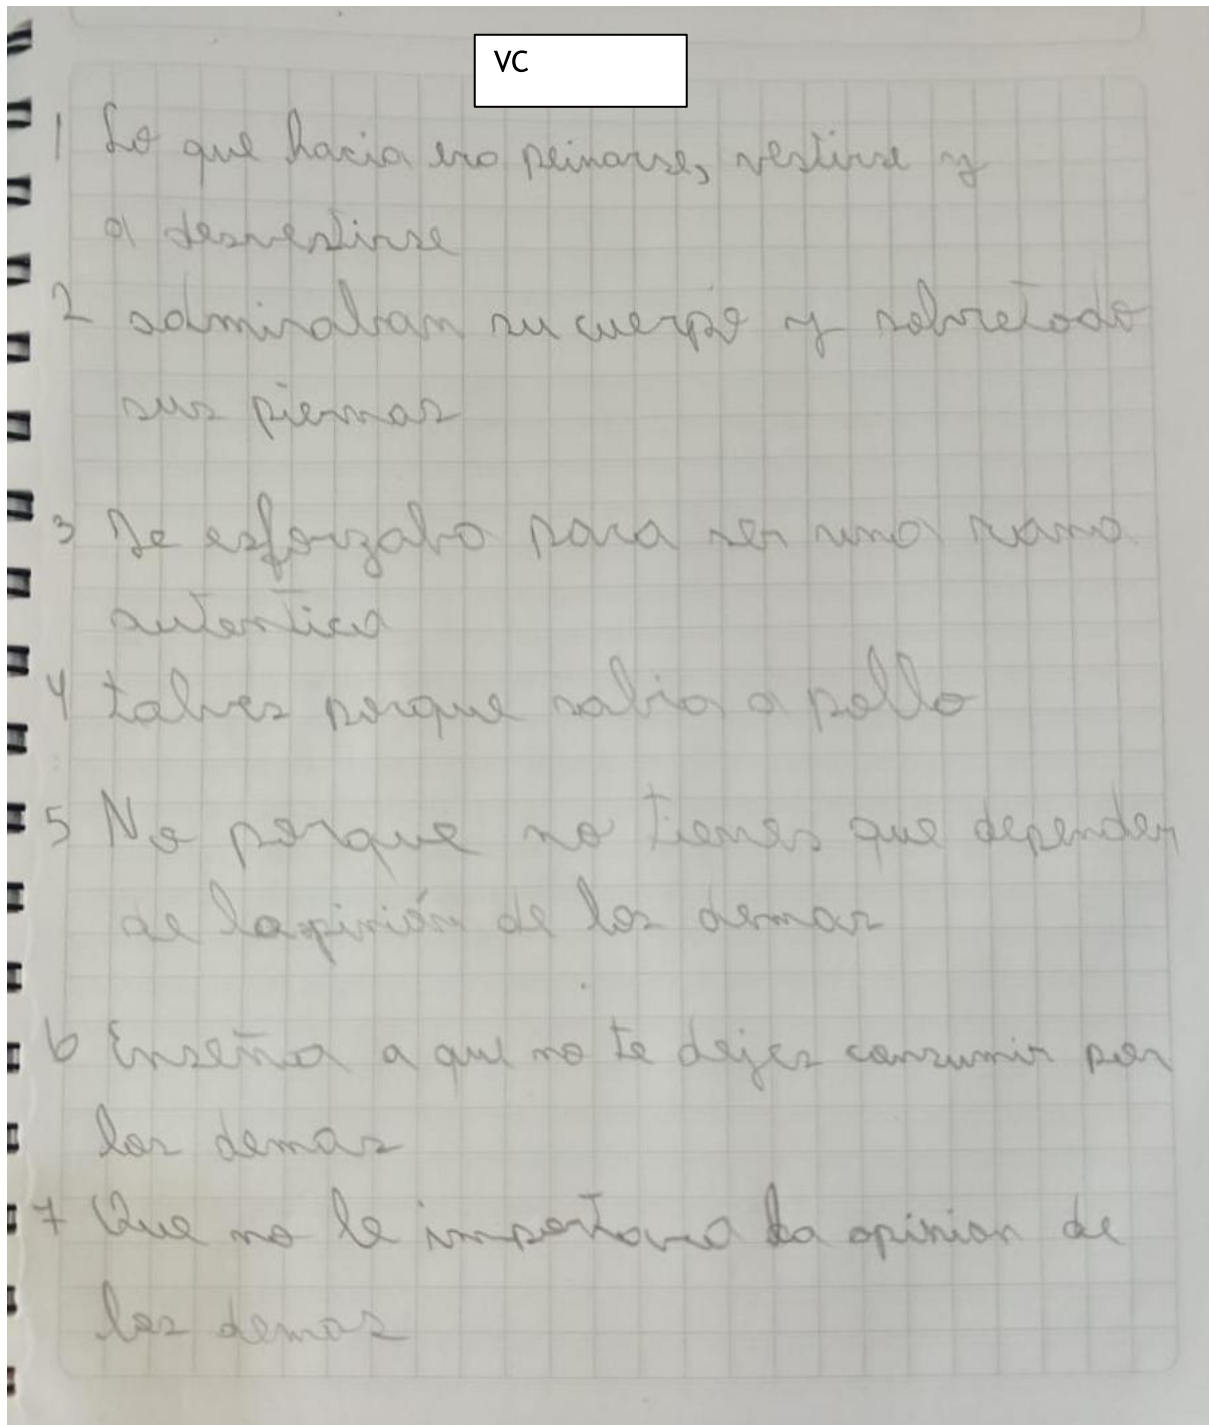 VC
1 Lo que hacia era peinarse, vestirse y
a desvestirse
2 admiraban su cuerpo y sobretodo
sus piernas
3 Se esforzaba para ser una rana
autentica
4 talves porque sabia a pollo
5 No porque no tienes que depender
de la opinión de los demas
6 Enseña a que no te dejes consumir por
los demas
7 Que no le importara la opinion de
los demas